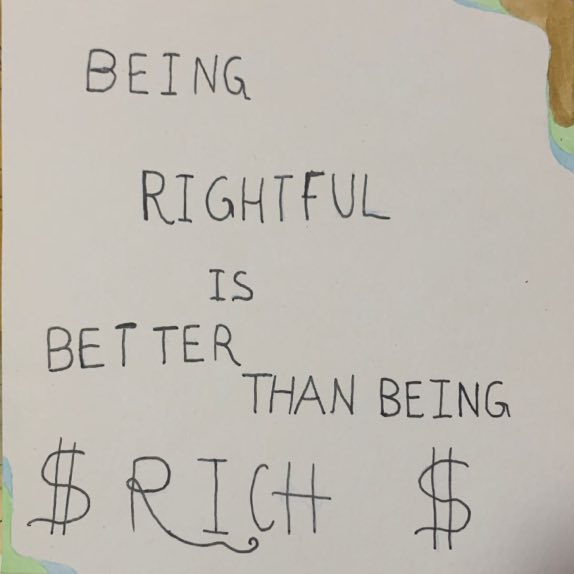 BEING
RIGHTFUL
IS
BETTER
THAN BEING
$ RICH $